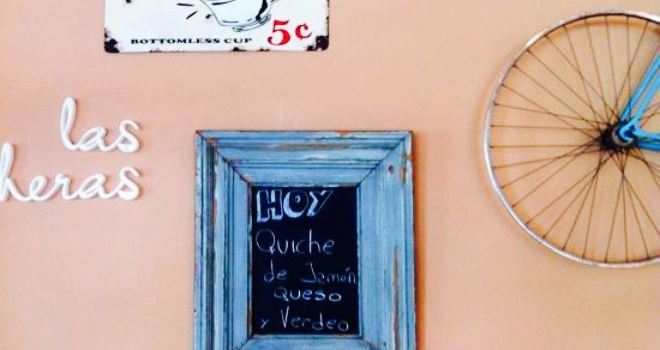 BOTTOMLESS CUP 5¢
las
heras
HOY
Quiche
de Jamón
queso
y Verdeo